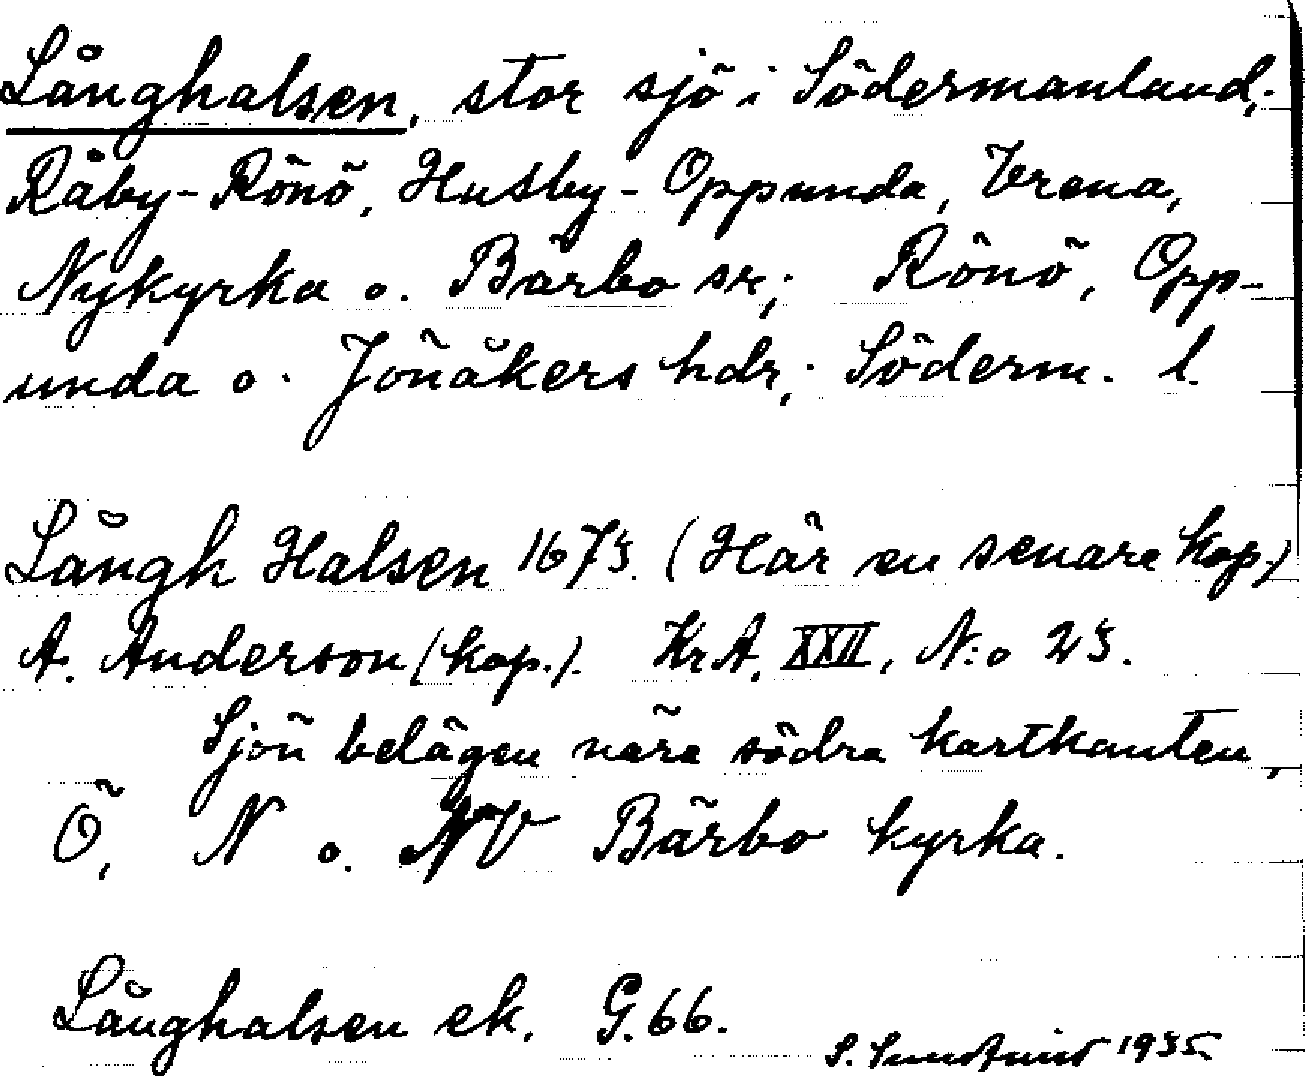 Långhalsen, stor sjö i Södermanland;
Råby-Rönö, Husby-Oppunda, Vrena,
Nykyrka o. Bärbo sr; Rönö, Opp-
unda o. Jönåkers hdr; Söderm. l.
Långh Halsen 1675. (Här en senare kop.)
A. Anderson (kop.). KrA, XXII, N:o 25.
Sjön belägen nära södra kartkanten,
Ö, N o. NV Bärbo kyrka.
Långhalsen ek. G. 66.
S. 1935